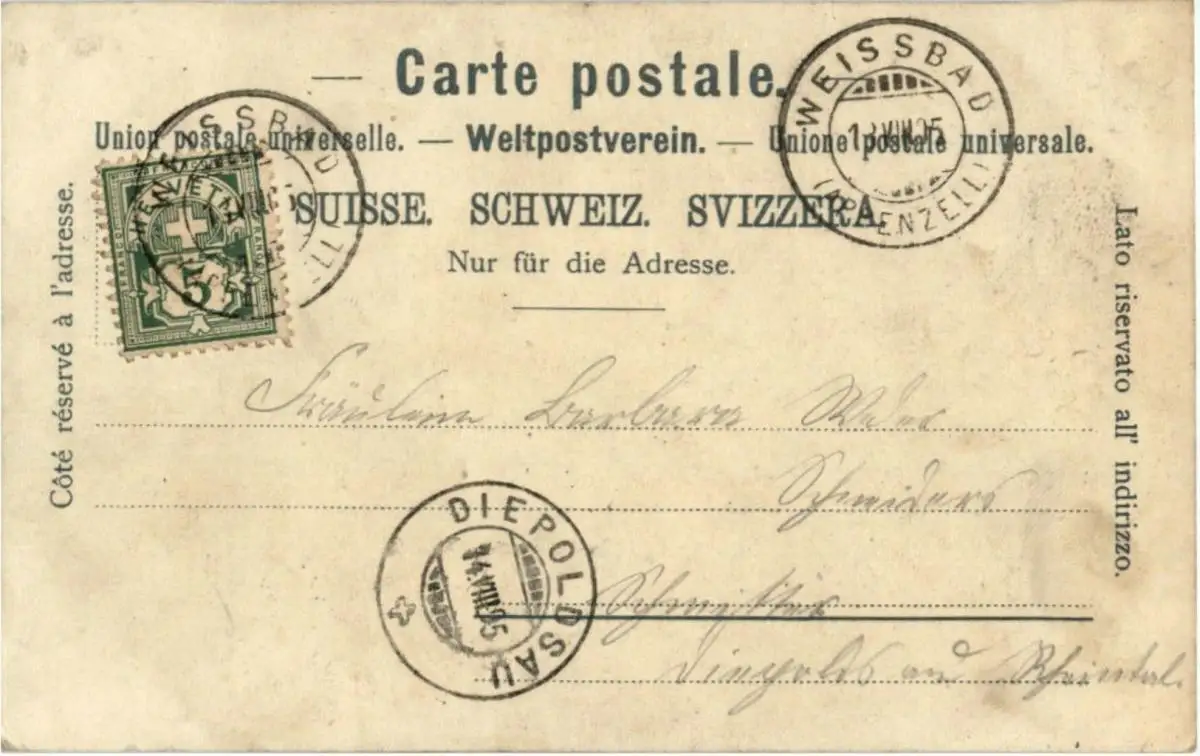 Carte postale.
Union postale universelle. — Weltpostverein. — Unione postale universale.
SUISSE. SCHWEIZ. SVIZZERA.
Nur für die Adresse.
Côté réservé à l'adresse.
Lato riservato all' indirizzo.
WEISSBAD
13.VIII.95
(APPENZELL)
WEISSBAD
HELVETIA
FRANCO
5
Fräulein Barbara Weder
DIEPOLDSAU
14.VIII.95
Rheintal.